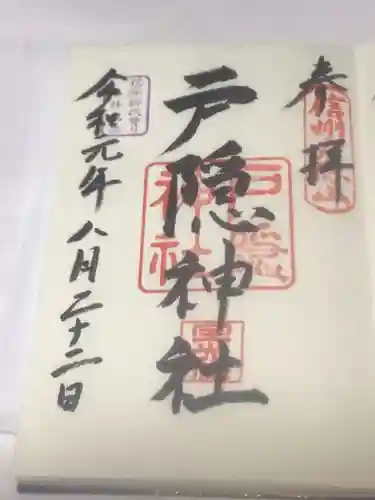 奉拝
信州
戸隠神社
戸隠神社
令和元年八月二十二日